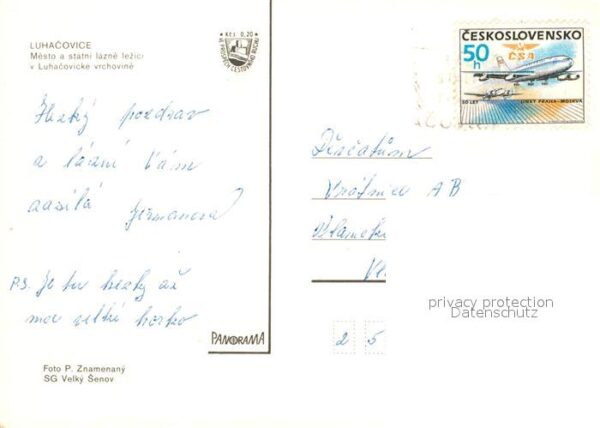 LUHAČOVICE
Město a státní lázně ležící
v Luhačovické vrchovině
Kčs 0,20
ČESKOSLOVENSKO
50 h
ČSA
50 LET LINKY PRAHA-MOSKVA
Hezký pozdrav
a lázní Vám
zasílá
Jermanová
P.S. Je tu hezky až
moc velké horko
Děvčatům
Vrátnice AB
privacy protection
Datenschutz
2 5
PANORAMA
Foto P. Znamenaný
SG Velký Šenov